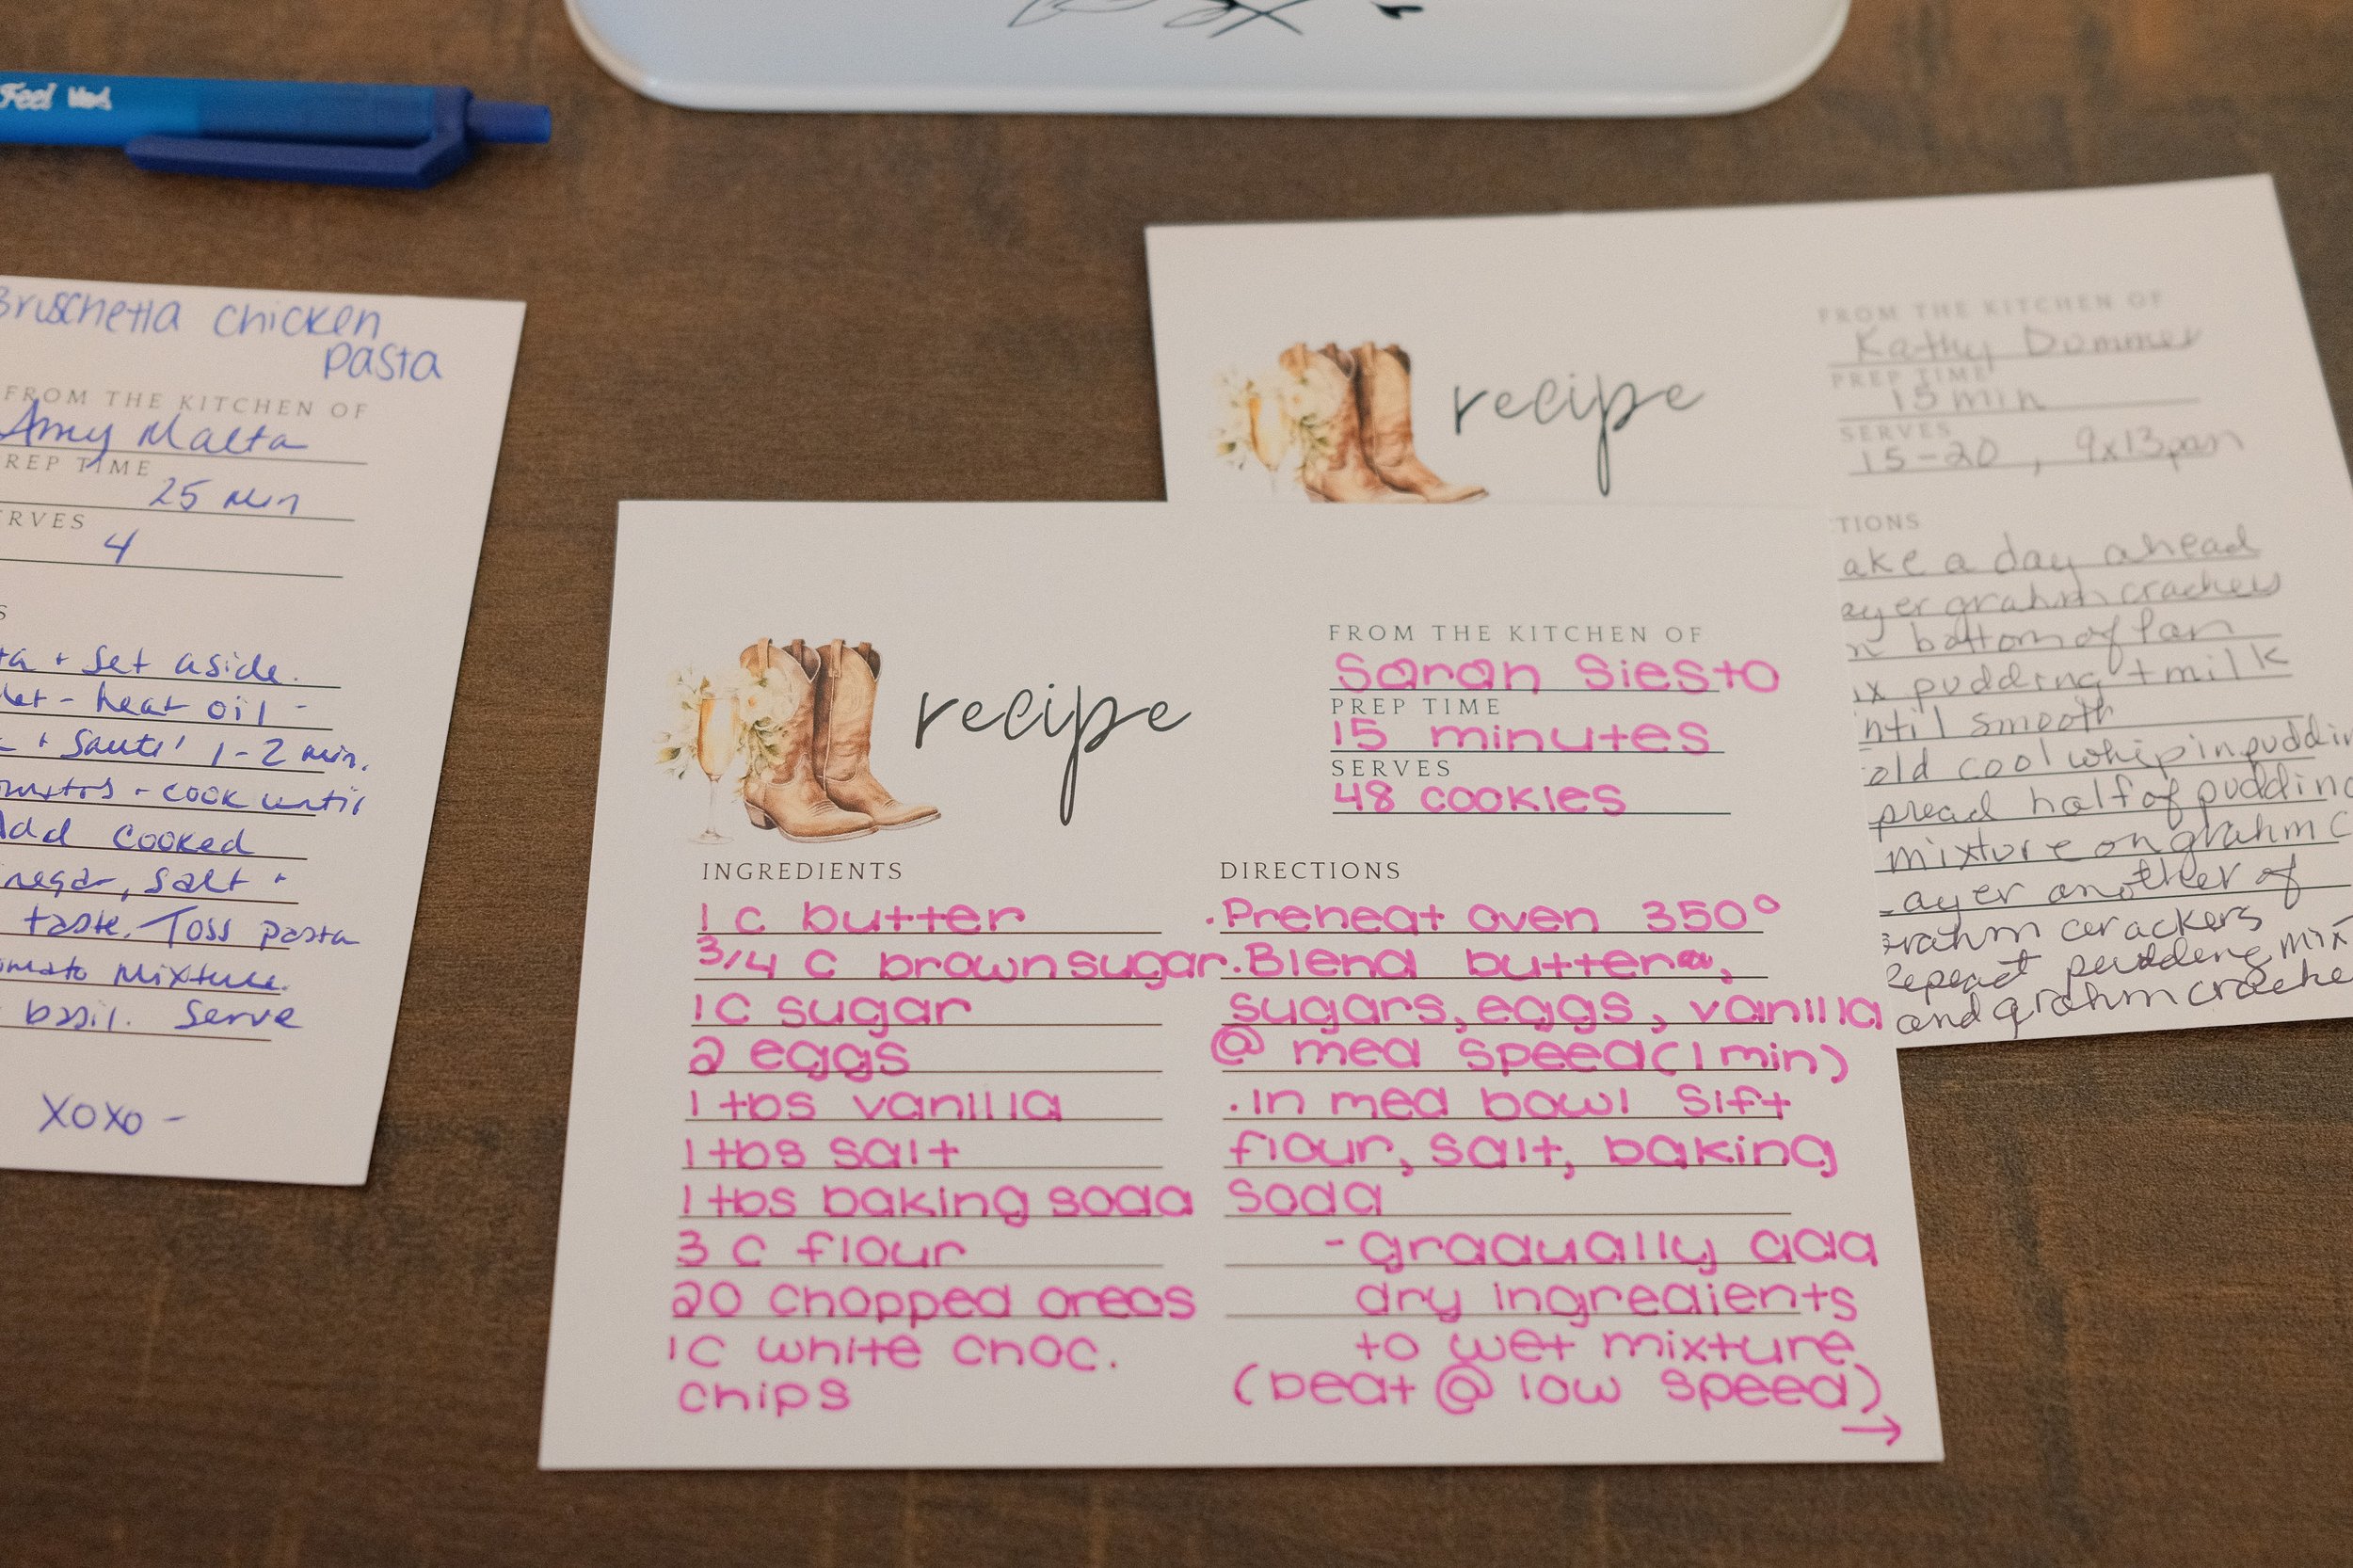 Feel
Bruschetta chicken
pasta
FROM THE KITCHEN OF
Amy Malta
PREP TIME
25 min
SERVES
4
+ Set aside.
heat oil -
+ Sauté 1-2 min.
- cook until
Add cooked
salt +
taste. Toss pasta
mixture.
basil. Serve
XOXO -
recipe
FROM THE KITCHEN OF
Kathy Dommer
PREP TIME
15 min
SERVES
15-20, 9x13pan
TIONS
ake a day ahead
ayer grahm crackers
n bottom of Pan
ix pudding + milk
ntil smooth
old cool whip in puddin
pread half of pudding
mixture on grahm c
Layer another of
grahm cerackers
Repeat pudding mix
and grahm cracke
recipe
FROM THE KITCHEN OF
Sarah Siesto
PREP TIME
15 minutes
SERVES
48 cookies
INGREDIENTS
1 c butter
3/4 c brown sugar
1c sugar
2 eggs
1 tbs vanilla
1 tbs salt
1 tbs baking soda
3 c flour
20 chopped oreos
1c white choc.
chips
DIRECTIONS
.Preheat oven 350°
.Blend butter,
sugars, eggs, vanilla
@ med speed (1 min)
.In med bowl sift
flour, salt, baking
soda
-gradually add
dry ingredients
to wet mixture
(beat @ low speed)
→